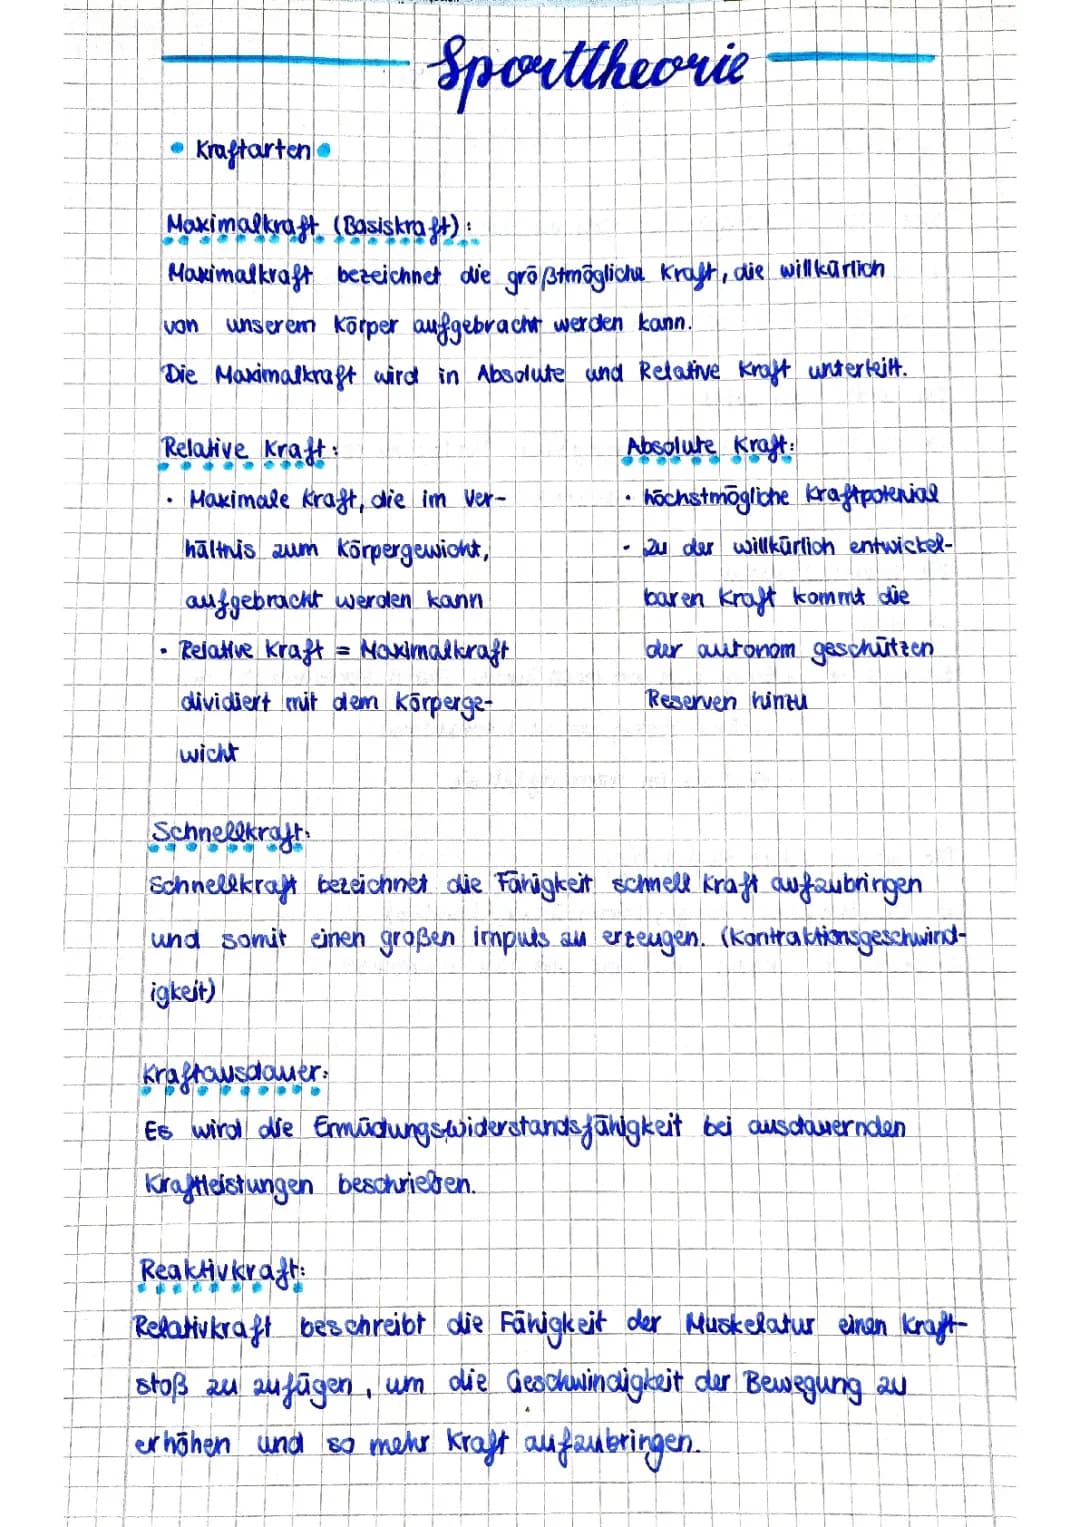 Sporttheorie
• Kraftarten •
Maximalkraft (Basiskraft):
Maximalkraft bezeichnet die größtmögliche Kraft, die willkürlich
von unserem Körper aufgebracht werden kann.
Die Maximalkraft wird in Absolute und Relative Kraft unterteilt.
Relative Kraft:
• Maximale Kraft, die im Ver-
hältnis zum Körpergewicht,
aufgebracht werden kann
• Relative Kraft = Maximalkraft
dividiert mit dem Körperge-
wicht
Absolute Kraft:
• höchstmögliche Kraftpotenial
• Zu der willkürlich entwickel-
baren Kraft kommt die
der autonom geschützen
Reserven hinzu
Schnellkraft:
Schnellkraft bezeichnet die Fähigkeit schnell Kraft aufzubringen
und somit einen großen impuls zu erzeugen. (Kontraktionsgeschwind-
igkeit)
Kraftausdauer:
Es wird die Ermüdungswiderstandsfähigkeit bei ausdauernden
Kraftleistungen beschrieben.
Reaktivkraft:
Relativkraft beschreibt die Fähigkeit der Muskelatur einen Kraft-
stoß zu zufügen, um die Geschwindigkeit der Bewegung zu
erhöhen und so mehr Kraft aufzubringen.